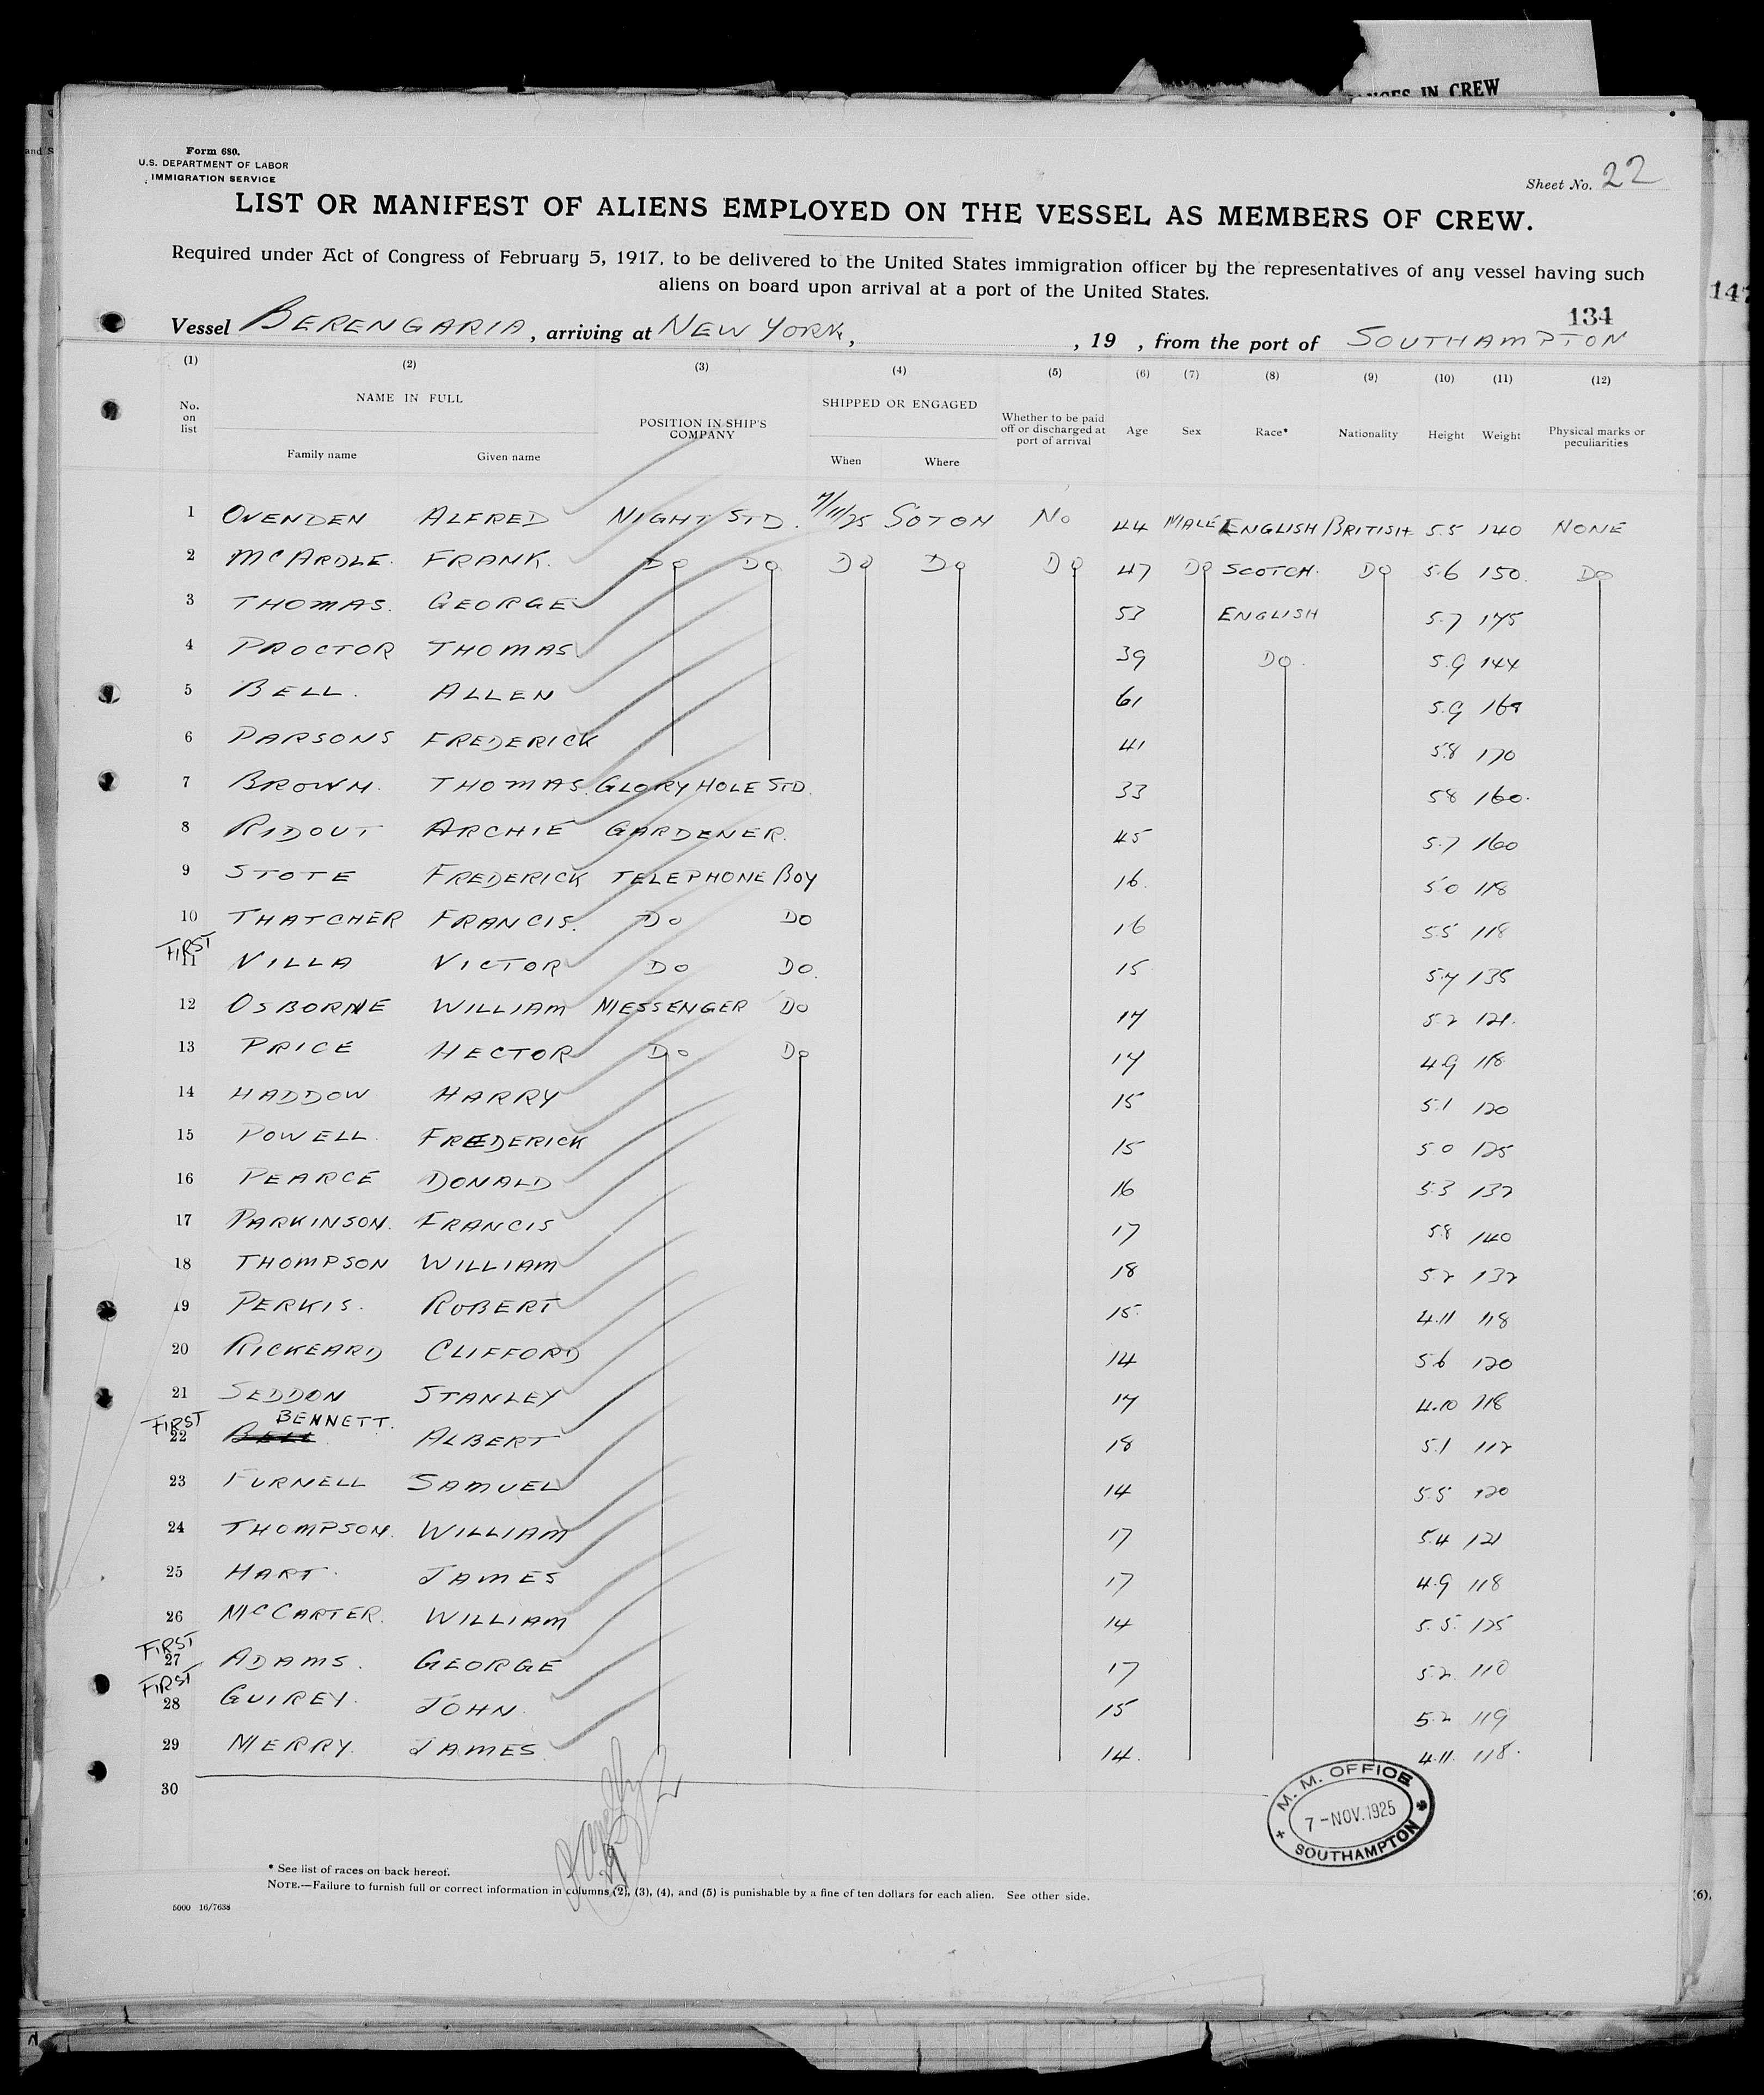 NGES IN CREW
and S
Form 680.
U.S. DEPARTMENT OF LABOR
IMMIGRATION SERVICE
Sheet No. 22
LIST OR MANIFEST OF ALIENS EMPLOYED ON THE VESSEL AS MEMBERS OF CREW.
Required under Act of Congress of February 5, 1917, to be delivered to the United States immigration officer by the representatives of any vessel having such
aliens on board upon arrival at a port of the United States.
147
134
Vessel BERENGARIA, arriving at NEW YORK, , 19 , from the port of SOUTHAMPTON
(1) (2) (3) (4) (5) (6) (7) (8) (9) (10) (11) (12)
No. on list NAME IN FULL POSITION IN SHIP'S COMPANY SHIPPED OR ENGAGED Whether to be paid off or discharged at port of arrival Age Sex Race* Nationality Height Weight Physical marks or peculiarities
Family name Given name When Where
1 OVENDEN ALFRED NIGHT STD. 7/11/25 SOTON NO 44 MALE ENGLISH BRITISH 5.5 140 NONE
2 MCARDLE. FRANK. DO DO DO DO DO 47 DO SCOTCH. DO 5.6 150. DO
3 THOMAS. GEORGE 53 ENGLISH 5.7 175
4 PROCTOR THOMAS 39 DO. 5.9 144
5 BELL. ALLEN 61 5.9
6 PARSONS FREDERICK 41 5.8 170
7 BROWN. THOMAS. GLORY HOLE STD. 33 5.8 160.
8 RIDOUT ARCHIE GARDENER. 45 5.7 160
9 STOTE FREDERICK TELEPHONE BOY 16. 5.0 118
10 THATCHER FRANCIS. DO DO 16 5.5 118
FIRST
11 VILLA VICTOR DO DO. 15 135
12 OSBORNE WILLIAM MESSENGER DO 17 5.2 121.
13 PRICE HECTOR DO DO 17 4.9 118
14 HADDOW HARRY 15 5.1 120
15 POWELL. FREDERICK 15 5.0 125
16 PEARCE DONALD 16 5.3 132
17 PARKINSON. FRANCIS 17 5.8 140
18 THOMPSON WILLIAM 18 5.2 132
19 PERKIS. ROBERT 15. 4.11 118
20 RICKEARD CLIFFORD 14 5.6 120
21 SEDDON STANLEY 17 4.10 118
FIRST BENNETT.
22 BELL ALBERT 18 5.1 112
23 FURNELL SAMUEL 14 5.5 120
24 THOMPSON. WILLIAM 17 5.4 121
25 HART. JAMES 17 4.9 118
26 MCCARTER. WILLIAM 14 5.5. 125
FIRST
27 ADAMS. GEORGE 17 5.2. 110
FIRST
28 GUIREY. JOHN. 15 5.2 119
29 MERRY. JAMES 14. 4.11. 118.
30
M. M. OFFICE
7-NOV.1925
SOUTHAMPTON
* See list of races on back hereof.
NOTE.—Failure to furnish full or correct information in columns (2), (3), (4), and (5) is punishable by a fine of ten dollars for each alien. See other side.
(6),
5000 16/7638